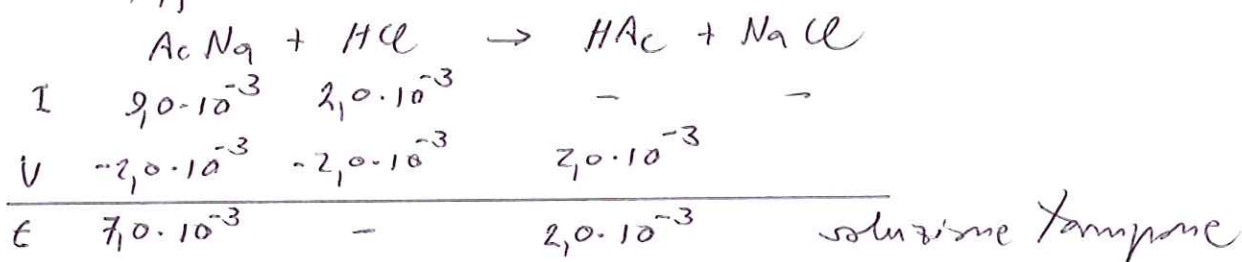 AcNa + HCl → HAc + NaCl
I 9,0·10⁻³ 2,0·10⁻³ – –
V -2,0·10⁻³ -2,0·10⁻³ 2,0·10⁻³
E 7,0·10⁻³ – 2,0·10⁻³ soluzione tampone